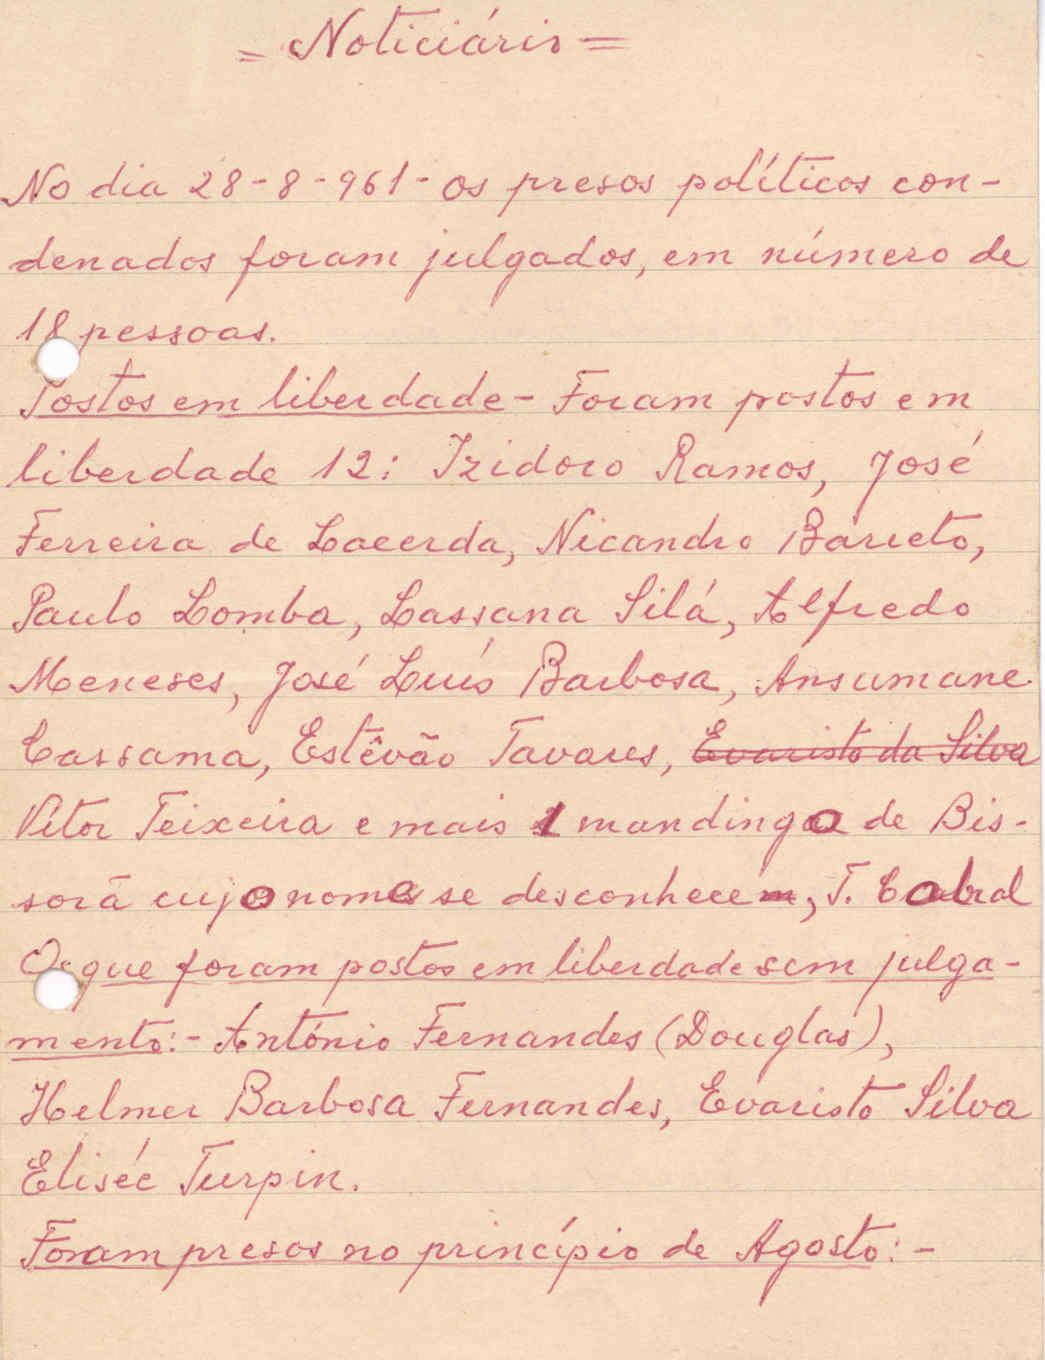 = Noticiário =
No dia 28-8-961- os presos políticos con-
denados foram julgados, em número de
18 pessoas.
Postos em liberdade - Foram postos em
liberdade 12: Izidoro Ramos, José
Ferreira de Lacerda, Nicandro Barreto,
Paulo Lomba, Lassana Silá, Alfredo
Meneses, José Luís Barbosa, Ansumane
Cassama, Estêvão Tavares, Evaristo da Silva
Vítor Teixeira e mais 1 mandinga de Bis-
sorã cujo nome se desconhece, T. Cabral
Os que foram postos em liberdade sem julga-
mento:- António Fernandes (Douglas),
Helmer Barbosa Fernandes, Evaristo Silva
Eliséе Turpin.
Foram presos no princípio de Agosto:-